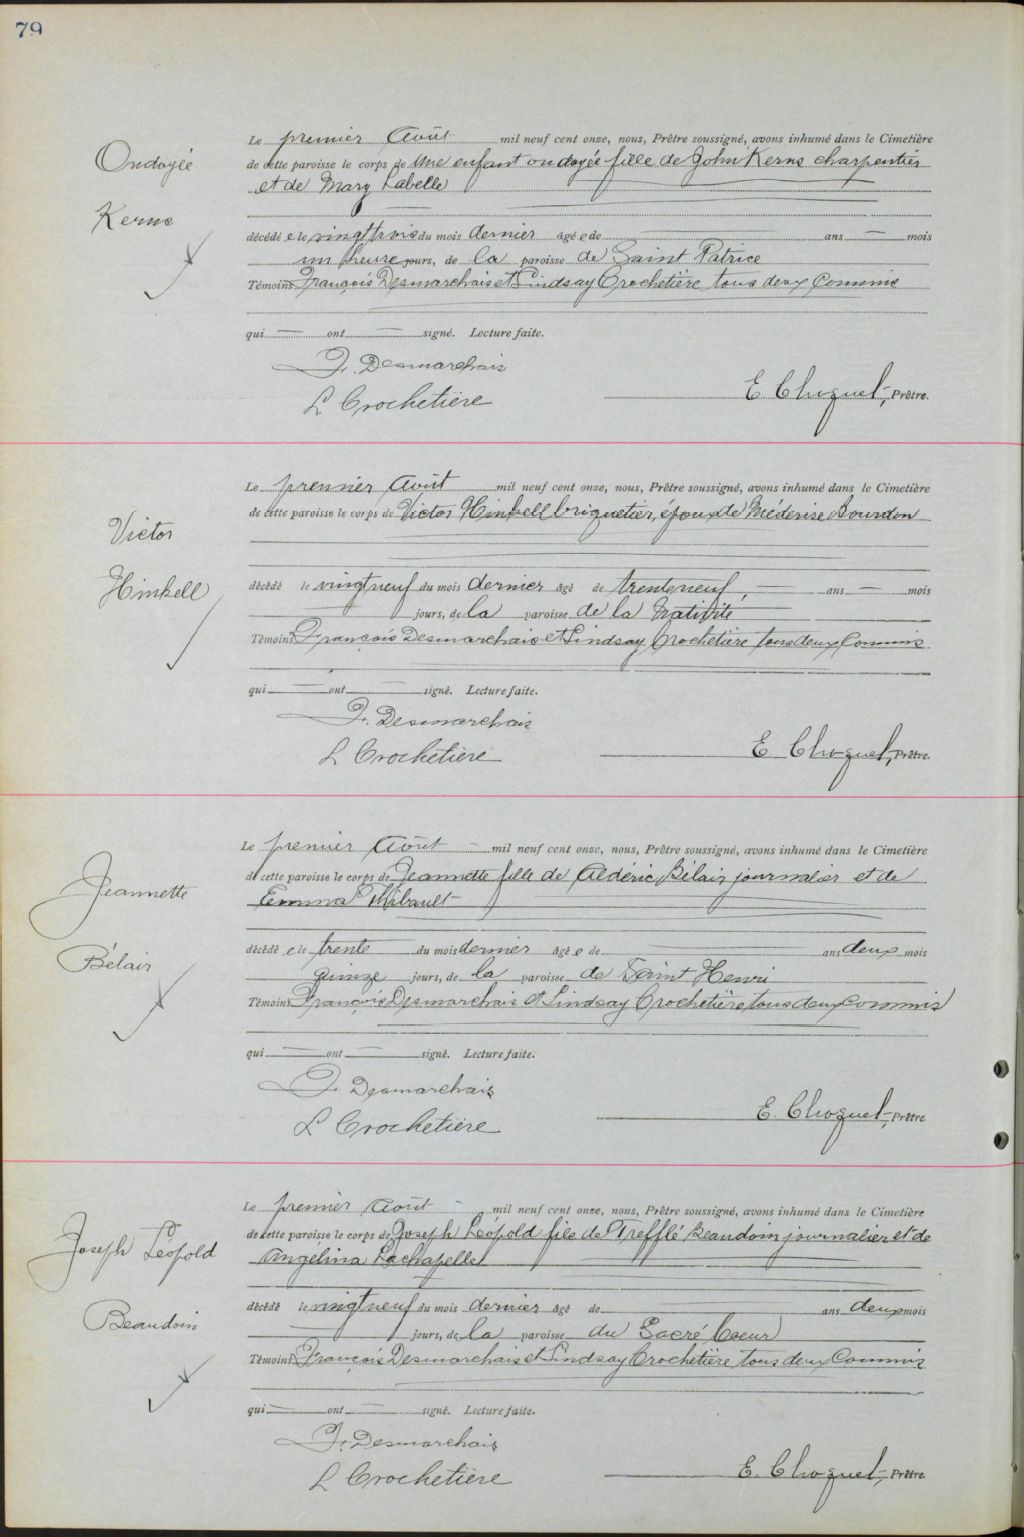 79
Ondoyée
Kerns
Le premier Août mil neuf cent onze, nous, Prêtre soussigné, avons inhumé dans le Cimetière
de cette paroisse le corps de une enfant ondoyée fille de John Kerns charpentier
et de Mary Labelle
décédé e le vingt trois du mois dernier âgé e de — ans — mois
un heure jours, de la paroisse de Saint Patrice
Témoins François Desmarchais et Lindsay Crochetière tous deux Commis
qui — ont — signé. Lecture faite.
F. Desmarchais
L Crochetière
E Choquet, Prêtre.
Victor
Hinkell
Le premier Août mil neuf cent onze, nous, Prêtre soussigné, avons inhumé dans le Cimetière
de cette paroisse le corps de Victor Hinkell briquetier, époux de Méderise Bourdon
décédé le vingt neuf du mois dernier âgé de trente neuf, — ans — mois
jours, de la paroisse de la Nativité
Témoins François Desmarchais et Lindsay Crochetière tous deux Commis
qui — ont — signé. Lecture faite.
F. Desmarchais
L Crochetière
E. Choquet, Prêtre.
Jeannette
Bélair
Le premier Août — mil neuf cent onze, nous, Prêtre soussigné, avons inhumé dans le Cimetière
de cette paroisse le corps de Jeannette fille de Aldéric Bélair journalier et de
Emma Thibault
décédé e le trente du mois dernier âgé e de — ans deux mois
quinze jours, de la paroisse de Saint Henri
Témoins François Desmarchais et Lindsay Crochetière tous deux Commis
qui — ont — signé. Lecture faite.
F. Desmarchais
L Crochetière
E. Choquet, Prêtre.
Joseph Léopold
Beaudoin
Le premier Août — mil neuf cent onze, nous, Prêtre soussigné, avons inhumé dans le Cimetière
de cette paroisse le corps de Joseph Léopold fils de Trefflé Beaudoin journalier et de
Angélina Lachapelle
décédé le vingt neuf du mois dernier âgé de — ans deux mois
jours, de la paroisse du Sacré Coeur
Témoins François Desmarchais et Lindsay Crochetière tous deux Commis
qui — ont — signé. Lecture faite.
F. Desmarchais
L Crochetière
E. Choquet, Prêtre.